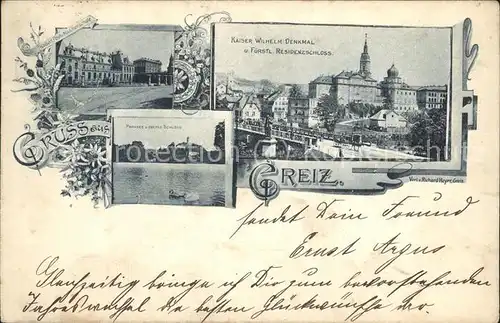 KAISER WILHELM-DENKMAL
U. FÜRSTL. RESIDENZSCHLOSS.
PARKSEE U. OBERES SCHLOSS
GRUSS aus
GREIZ.
Verl. v. Richard Heyer, Greiz.
sendet Dein Freund
Ernst Argus
Gleichzeitig bringe ich Dir zum bevorstehenden
Jahreswechsel die besten Glückwünsche